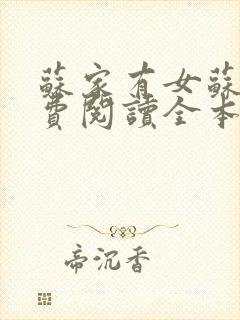 蘇家有女蘇
費閱讀全本
帝沉香